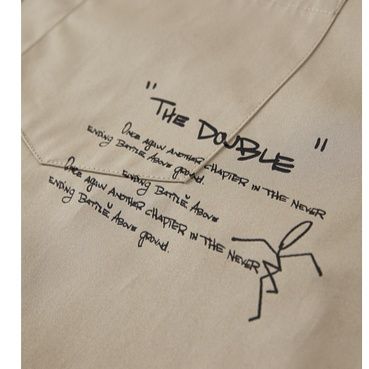 " THE DOUBLE "
ONCE AGAIN ANOTHER CHAPTER IN THE NEVER
ENDING BATTLE ABOVE GROUND.
ENDING BATTLE ABOVE
ONCE AGAIN ANOTHER CHAPTER IN THE NEVER
ENDING BATTLE ABOVE GROUND.